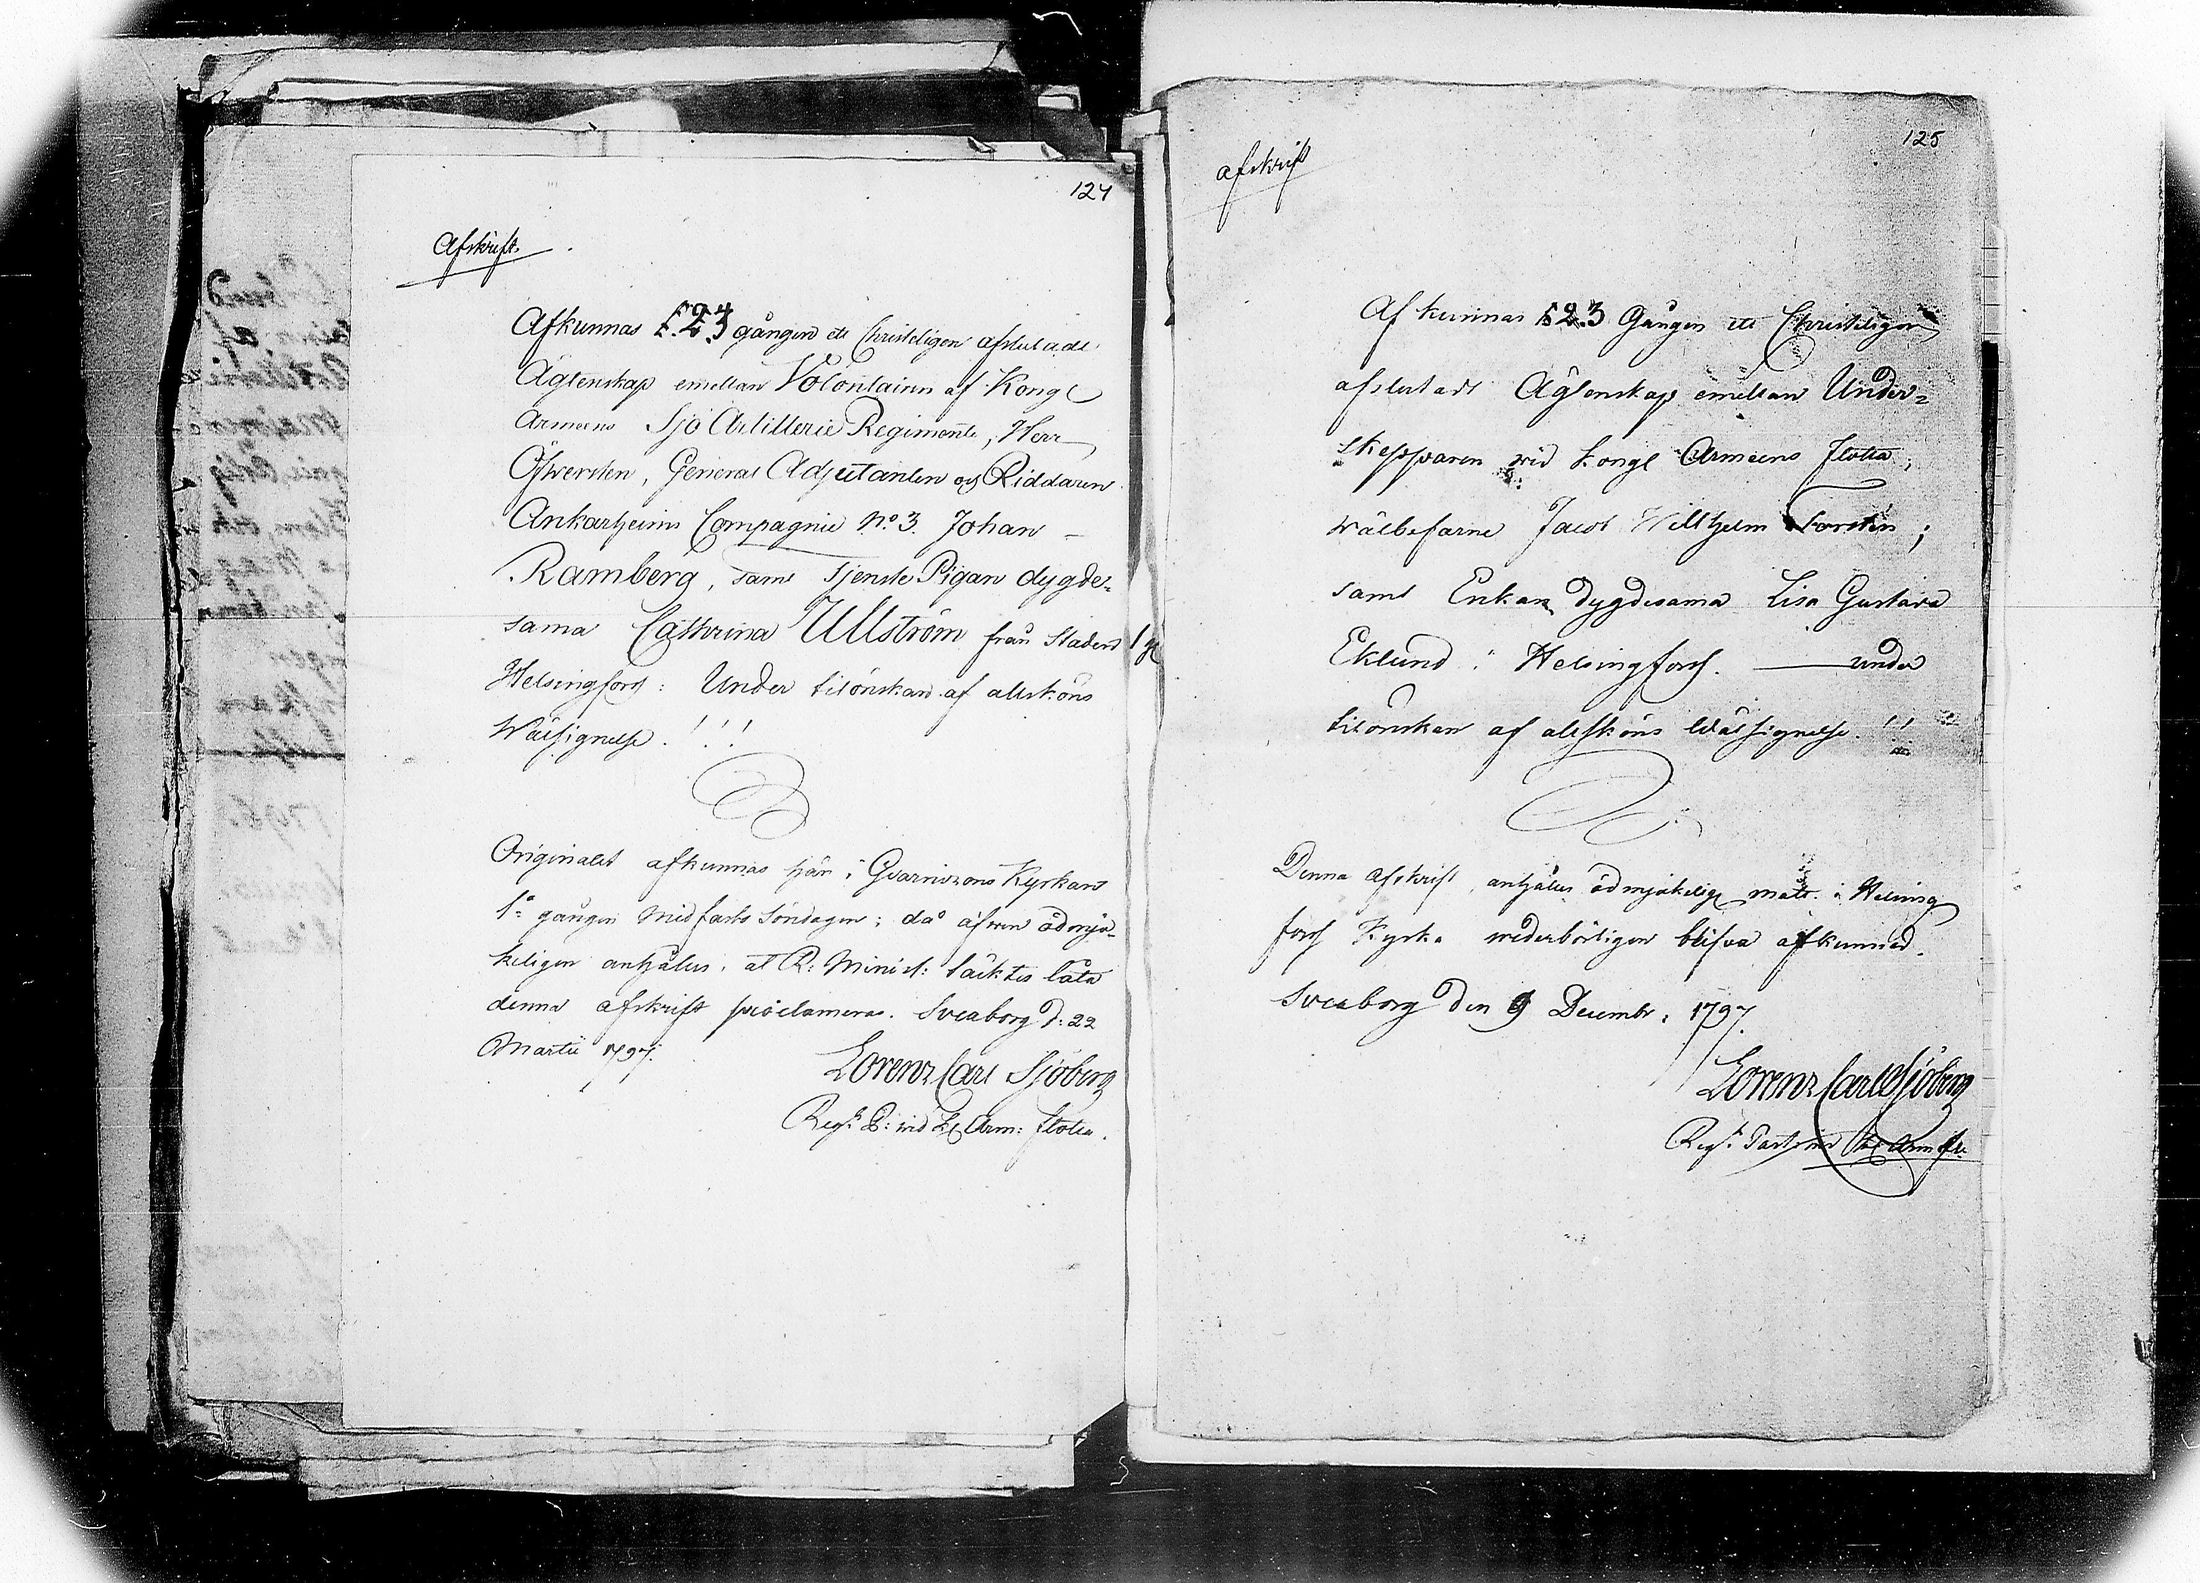 124
Afskrift.
Afkunnas 1. 2. 3 gången ett Christeligen afslutadt
Ägtenskap emellan Volontairen af Kongl
Armeens Sjö Artillerie Regimente, Herr
Öfwersten, General Adjutanten och Riddaren
Ankarheims Compagnie N:o 3. Johan –
Ramberg, samt Tjenste Pigan dygde-
sama Cathrina Ullström från Staden
Helsingfors: Under tilönskan af allsköns
Wälsignelse. ! ! !
Originalet afkunnas här i Gvarnizons Kyrkan
1:a gången Midfasto Söndagen; då äfwen ödmju-
keligen anhålles, at R: Minist: täcktes låta
denna afskrift proclameras. Sveaborg d: 22
Martii 1797.
Lorenz Carl Sjöberg
Reg:ts P: vid Kl Arm: flotta.
125
afskrift
Afkunnas 1. 2. 3 Gången ett Christeligen
afslutadt Ägtenskap emellan Under-
Skepparen wid Kongl Armeens flotta,
wälbefarne Jacob Willhelm Forstén;
samt Enkan dygdesama Lisa Gustava
Eklund i Helsingfors. — under
tilönskan af allsköns Wälsignelse. ! ! !
Denna afskrift, anhålles ödmjukeligen, måtte i Helsing
fors Kyrka wederbörligen blifva afkunnad.
Sveaborg den 9 Decembr: 1797.
Lorenz Carl Sjöberg
Reg:ts Past: vid Kl Arm: fl: